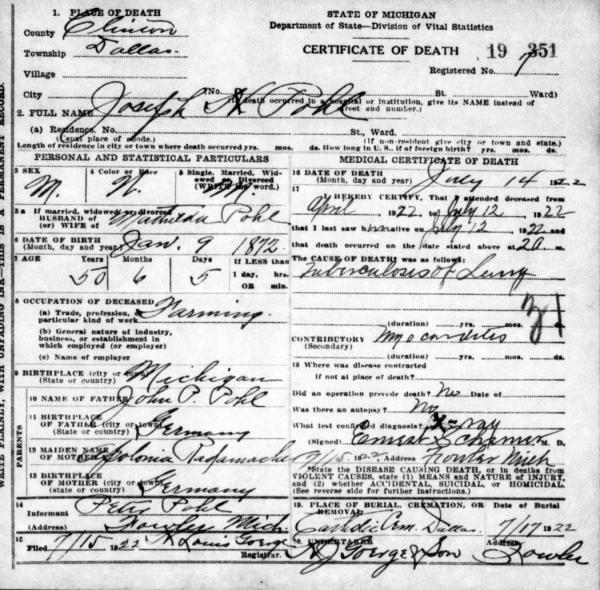 1. PLACE OF DEATH
County Clinton
Township Dallas
Village
City
STATE OF MICHIGAN
Department of State—Division of Vital Statistics
CERTIFICATE OF DEATH 19 351
Registered No. 7
(No. St. Ward)
(If death occurred in a hospital or institution, give its NAME instead of street and number.)
2. FULL NAME Joseph H Pohl
(a) Residence. No. St., Ward.
(Usual place of abode.) (If non-resident give city or town and state.)
Length of residence in city or town where death occurred yrs. mos. ds. How long in U. S., if of foreign birth? yrs. mos. ds.
PERSONAL AND STATISTICAL PARTICULARS
3 SEX
M
4 Color or Race
W
5 Single, Married, Widowed or Divorced
(WRITE the word.)
M
5a If married, widowed or divorced
HUSBAND of
(or) WIFE of Mathilda Pohl
6 DATE OF BIRTH
(Month, day and year) Jan. 9 1872
7 AGE Years Months Days If LESS than
1 day, hrs.
OR min.
50 6 5
8 OCCUPATION OF DECEASED
(a) Trade, profession, or
particular kind of work Farming
(b) General nature of industry,
business, or establishment in
which employed (or employer)
(c) Name of employer
9 BIRTHPLACE (city or town)
(State or country) Michigan
PARENTS
10 NAME OF FATHER John P. Pohl
11 BIRTHPLACE
OF FATHER (city or town)
(State or country) Germany
12 MAIDEN NAME
OF MOTHER
13 BIRTHPLACE
OF MOTHER (city or town)
(State or country) Germany
14
Informant Peter Pohl
(Address) Fowler Mich.
15
Filed 7/15 1922 N Louis Goerge
Registrar.
MEDICAL CERTIFICATE OF DEATH
16 DATE OF DEATH
(Month, day and year) July 14 1922
17
I HEREBY CERTIFY, That I attended deceased from
April 1922 to July 12 1922
that I last saw him alive on July 12 1922
and that death occurred on the date stated above at 20 m.
The CAUSE OF DEATH was as follows:
Tuberculosis of Lung
31
(duration) yrs. mos. ds.
CONTRIBUTORY Myocarditis
(Secondary)
(duration) yrs. mos. ds.
18 Where was disease contracted
if not at place of death?
Did an operation precede death? No Date of
Was there an autopsy? No
What test confirmed diagnosis? X-ray
(Signed) Ernest Schemer M. D.
7/15 1922, Address Fowler Mich
*State the DISEASE CAUSING DEATH, or in deaths from
VIOLENT CAUSES, state (1) MEANS and NATURE OF INJURY,
and (2) whether ACCIDENTAL, SUICIDAL, or HOMICIDAL
(See reverse side for further instructions.)
19. PLACE OF BURIAL, CREMATION, OR REMOVAL Date of Burial
Catholic Cem. Dallas 7/17 1922
20. UNDERTAKER
N J Goerge & Son Fowler
WRITE PLAINLY, WITH UNFADING INK—THIS IS A PERMANENT RECORD.